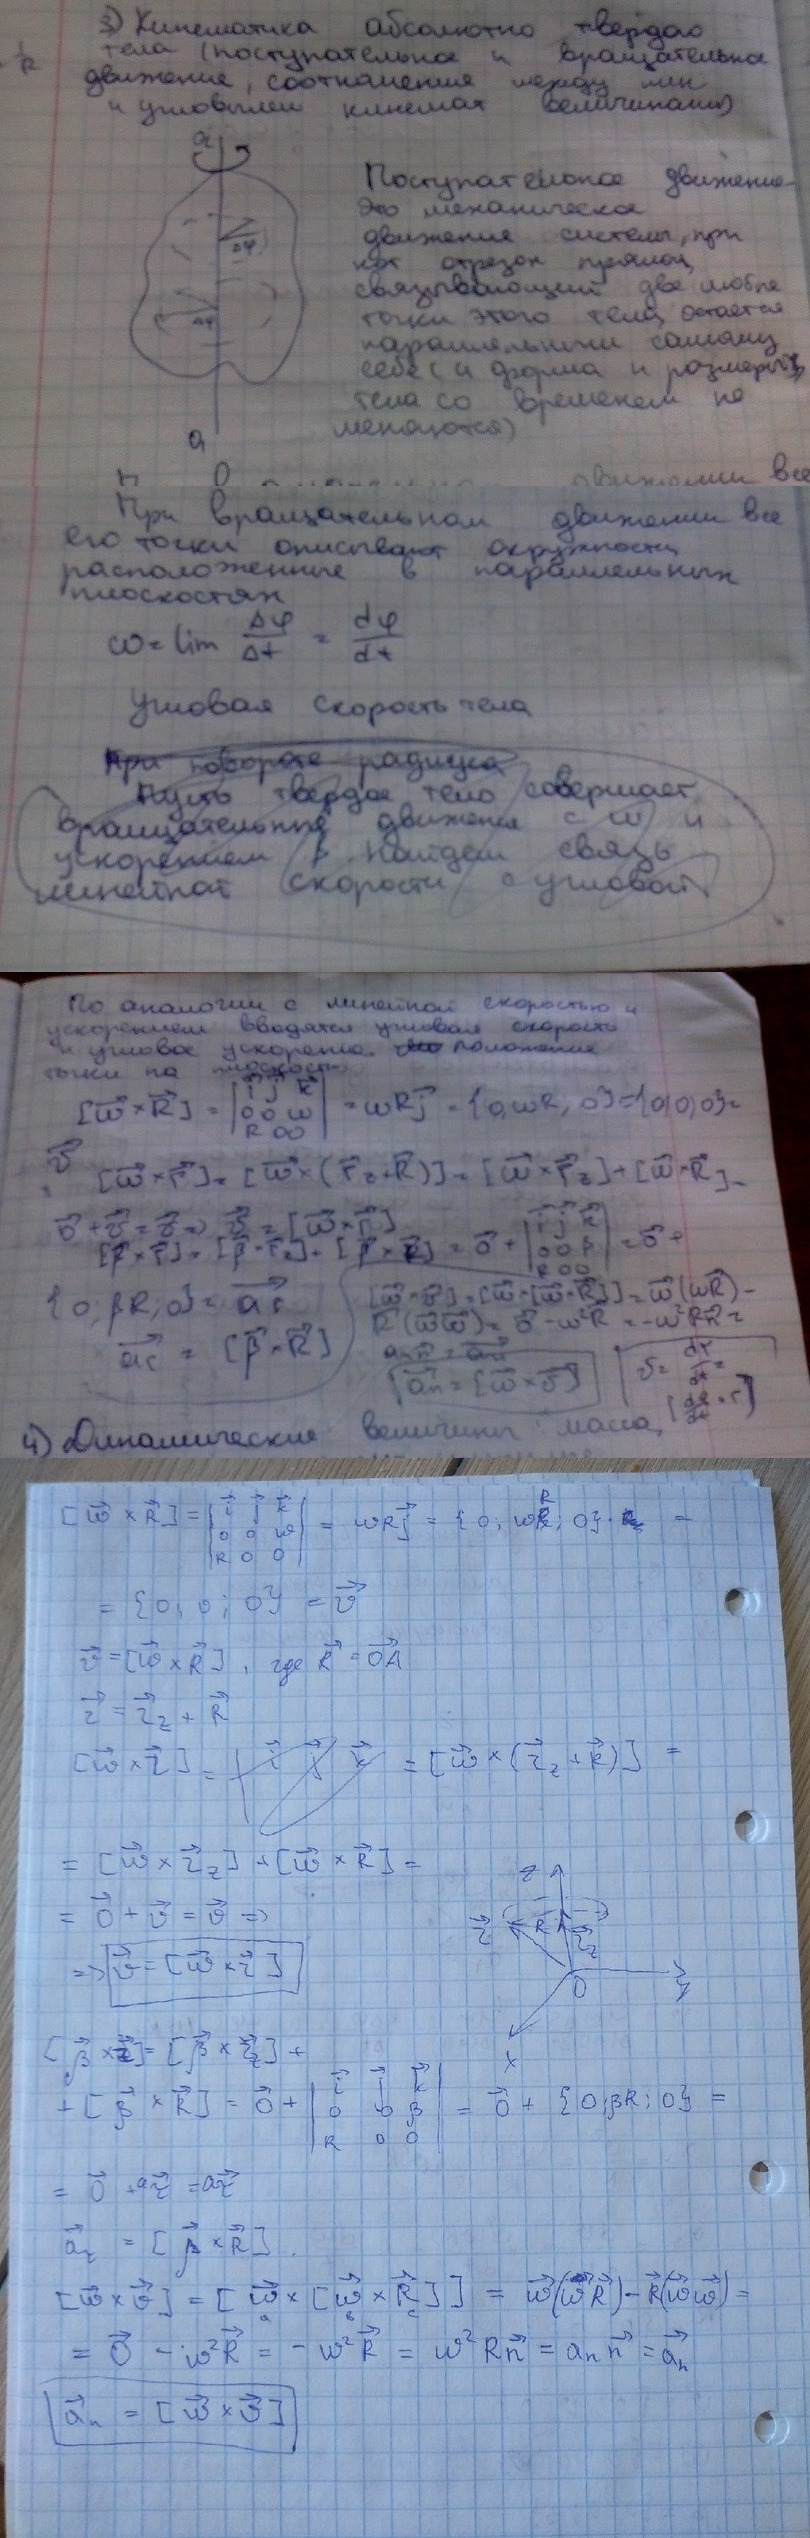 3) Кинематика абсолютно твердого
тела (поступательное и вращательное
движение, соотношения между лин
и угловыми кинемат величинами)
1/R
a
Δφ
Δφ
a
Поступательное движение-
это механическое
движение системы, при
кот отрезок прямой,
связывающий две любые
точки этого тела, остается
параллельным самому
себе (и форма и размеры
тела со временем не
меняются)
При вращательном движении все
его точки описывают окружности,
расположенные в параллельных
плоскостях
ω = lim Δφ/Δt = dφ/dt
Угловая скорость тела
При повороте радиуса
Пусть твердое тело совершает
вращательные движения с ω и
ускорением β Найдем связь
линейной скорости с угловой
По аналогии с линейной скоростью и
ускорением вводятся угловая скорость
и угловое ускорение. положение
точки на плоскости
[ω⃗ × R⃗] = |i⃗ j⃗ k⃗; 0 0 ω; R 0 0| = ωR j⃗ = {0, ωR, 0} = {0, υ, 0} =
υ⃗
[ω⃗ × r⃗] = [ω⃗ × (r⃗z + R⃗)] = [ω⃗ × r⃗z] + [ω⃗ × R⃗] =
0⃗ + υ⃗ = υ⃗ ⇒ υ⃗ = [ω⃗ × r⃗]
[β⃗ × r⃗] = [β⃗ × r⃗z] + [β⃗ × R⃗] = 0⃗ + |i⃗ j⃗ k⃗; 0 0 β; R 0 0| = 0⃗ +
{0; βR; 0} = a⃗τ
a⃗τ = [β⃗ × R⃗]
[ω⃗ × υ⃗] = [ω⃗ × [ω⃗ × R⃗]] = ω⃗(ω⃗R⃗) -
R⃗(ω⃗ω⃗) = 0⃗ - ω²R⃗ = -ω²R n⃗ =
an n⃗ = a⃗n
a⃗n = [ω⃗ × υ⃗]
υ = dr/dt =
[dφ/dt × r]
4) Динамические величины масса,
[ω⃗ × R⃗] = |i⃗ j⃗ k⃗; 0 0 ω; R 0 0| = ωR j⃗ = {0; ωR; 0} =
= {0; υ; 0} = υ⃗
υ⃗ = [ω⃗ × R⃗], где R⃗ = OA⃗
r⃗ = r⃗z + R⃗
[ω⃗ × r⃗] = | i⃗ j⃗ k⃗ = [ω⃗ × (r⃗z + R⃗)] =
= [ω⃗ × r⃗z] + [ω⃗ × R⃗] =
= 0⃗ + υ⃗ = υ⃗ ⇒
⇒ υ⃗ = [ω⃗ × r⃗]
z
r⃗
R
A
r⃗z
O
y
x
[β⃗ × r⃗] = [β⃗ × r⃗z] +
+ [β⃗ × R⃗] = 0⃗ + |i⃗ j⃗ k⃗; 0 0 β; R 0 0| = 0⃗ + {0; βR; 0} =
= 0⃗ + a⃗τ = a⃗τ
a⃗τ = [β⃗ × R⃗].
[ω⃗ × υ⃗] = [ω⃗ × [ω⃗ × R⃗]] = ω⃗(ω⃗R⃗) - R⃗(ω⃗ω⃗) =
a b c
= 0⃗ - ω²R⃗ = -ω²R⃗ = ω²R n⃗ = an n⃗ = a⃗n
a⃗n = [ω⃗ × υ⃗]